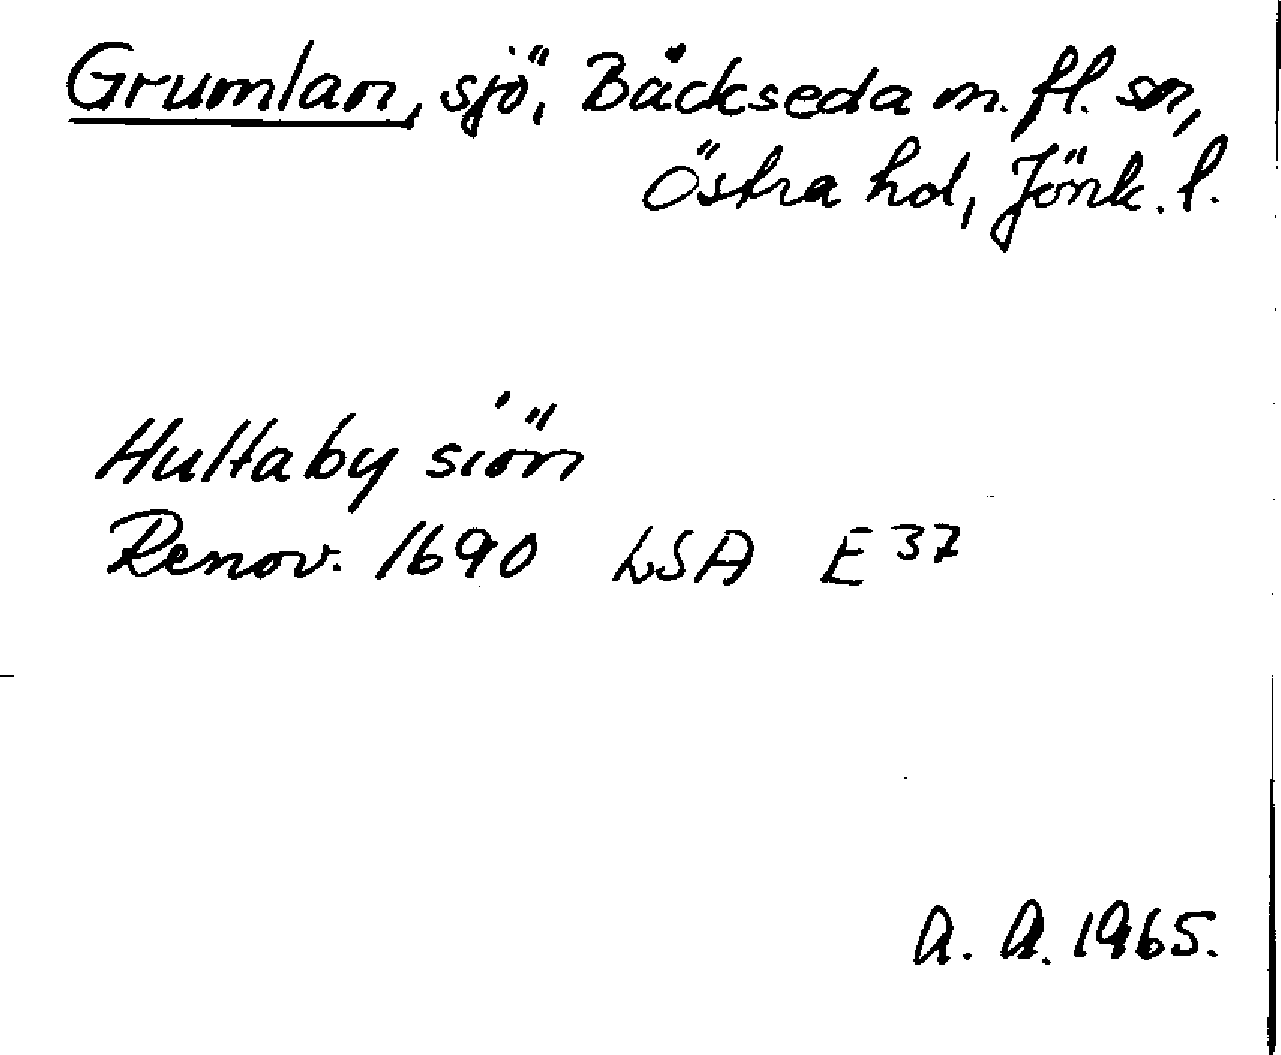 Grumlan, sjö, Bäckseda m. fl. snr,
Östra hd, Jönk. l.
Hultaby siön
Renov. 1690 LSA E 37
A. A. 1965.